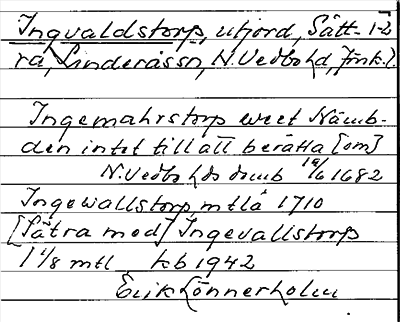 Ingvaldstorp, utjord, Sätt- 1-2
ra, Linderåssn, N. Vedbohd, Jönk.l.
Ingemahrstorp weet Nämb-
den intet till att berätta [om]
N. Vedbo hds domb 19/6 1682
Ingewallstorp, mtlå 1710
[Sätra med] Ingevallstorp
1 1/8 mtl kb 1942
Erik Lönnerholm